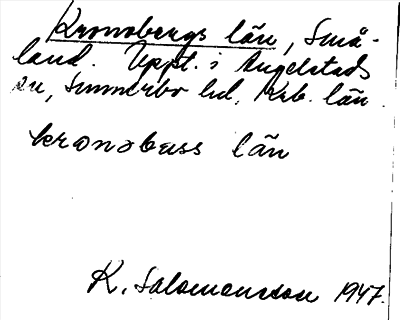 Kronobergs län, Små-
land. Uppt. i Angelstads
sn, Sunnerbo hd, Krb. län.
kronobæss län
K. Salomonsson 1947.